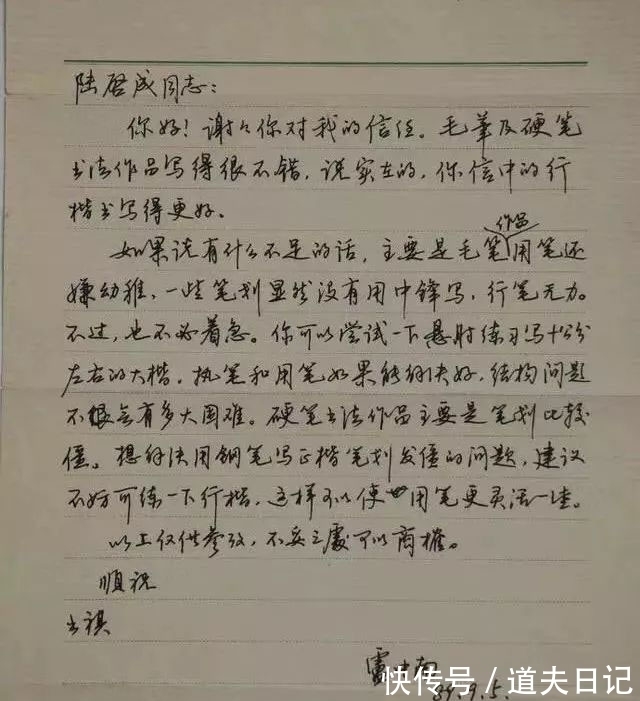 陆启成同志：
你好！谢谢你对我的信任。毛筆及硬笔
书法作品写得很不错，说实在的，你信中的行
楷书写得更好。
作品
如果说有什么不足的话，主要是毛笔用笔还
嫌幼稚，一些笔划显然没有用中锋写，行笔无力。
不过，也不必着急。你可以尝试一下悬肘练习写十公分
左右的大楷。执笔和用笔如果能解决好，结构问题
不很会有多大困难。硬笔书法作品主要是笔划比较
僵。想解决用钢笔写正楷笔划发僵的问题，建议
不妨可练一下行楷，这样可以使用笔更灵活一些。
以上仅供参考，不妥之處可以商榷。
順祝
书祺
89.9.5.
快传号／道夫日记